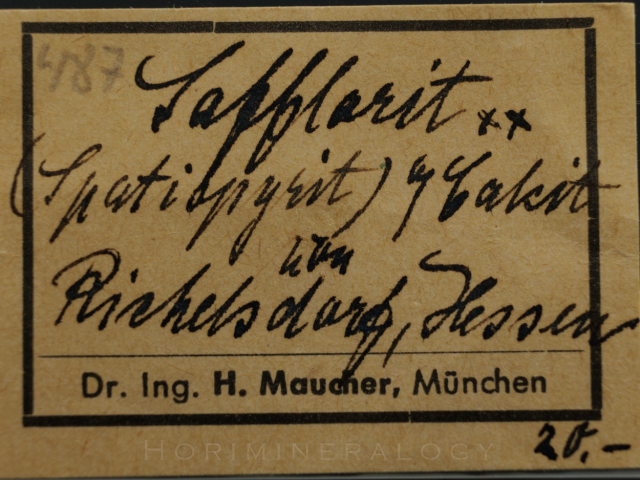 487
Safflorit xx
(Spatiopyrit) a/ Calcit
von
Richelsdorf, Hessen
Dr. Ing. H. Maucher, München
20,-
HORIMINERALOGY